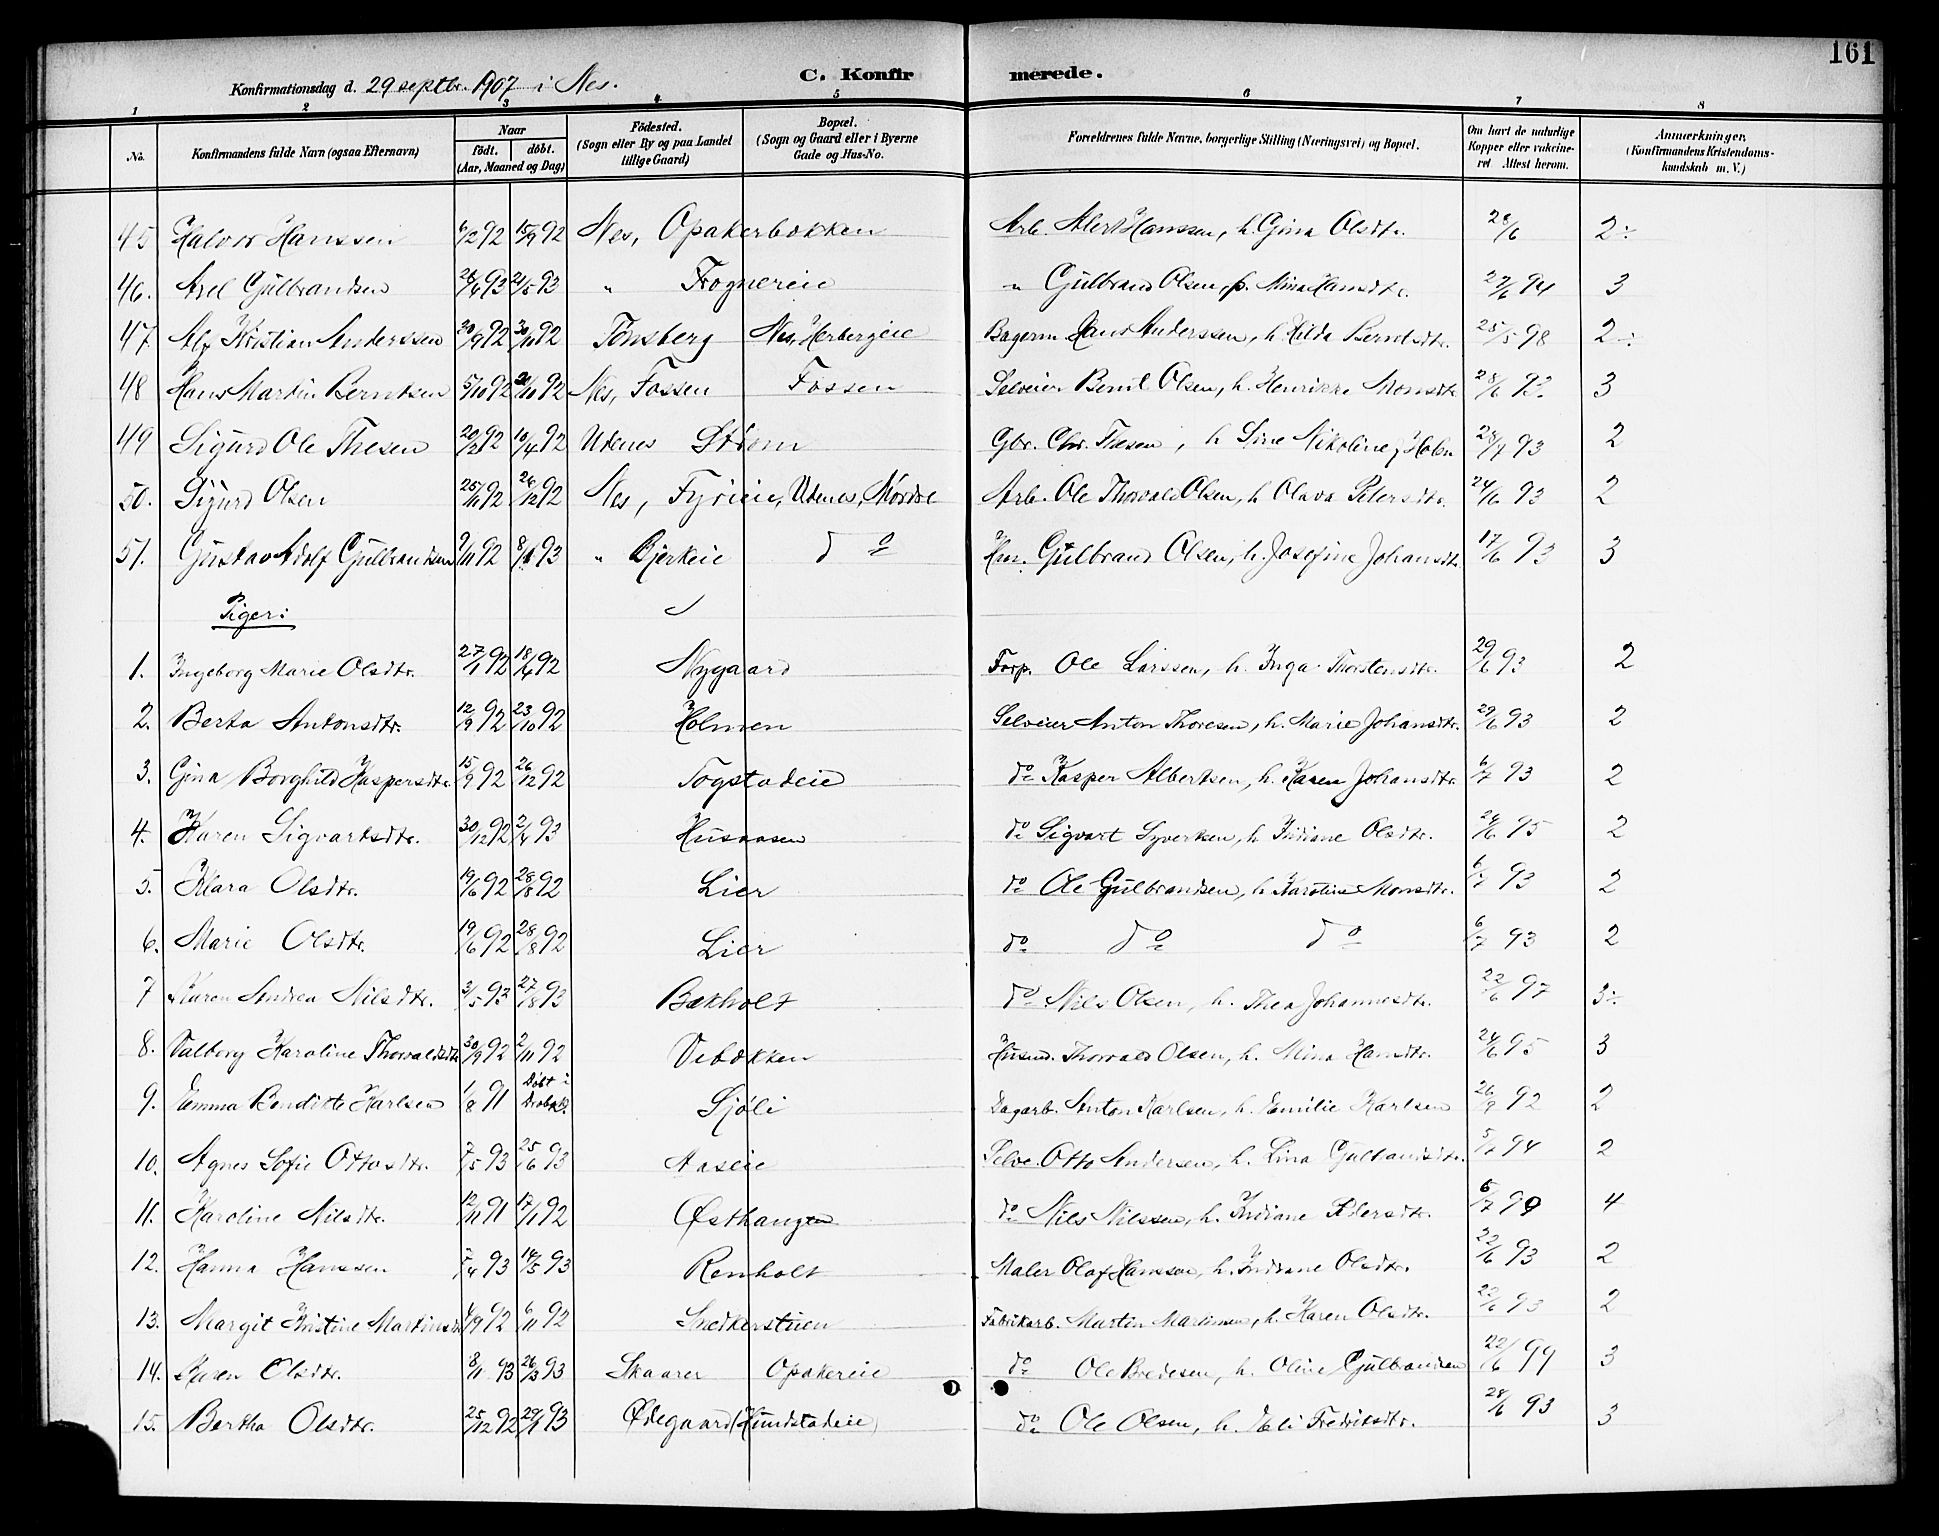 161
C. Konfirmerede.
Konfirmationsdag d. 29 septbr. 1907 i Nes.
1 2 3 4 5 6 7 8
No. Konfirmandens fulde Navn (ogsaa Efternavn) Naar født. døbt. (Aar, Maaned og Dag) Fødested. (Sogn eller By og paa Landet tillige Gaard) Bopæl. (Sogn og Gaard eller i Byerne Gade og Hus-No. Forældrenes fulde Navne, borgerlige Stilling (Næringsvei) og Bopæl. Om havt de naturlige Kopper eller vakcineret. Attest herom. Anmærkninger, (Konfirmandens Kristendomskundskab m. V.)
45 Halvor Hanssen 6/2 92 15/9 92 Nes, Opakerbækken Arb. Alert Hanssen, h. Gina Olsdtr. 28/6 2÷
46. Axel Gulbrandsen 93 21/5 93 " Frognereie " Gulbrand Olsen, p. Mina Hansdtr. 27/6 94 3
47. Alf Kristian Anderssen 30/9 92 30/11 92 Tønsberg Nes, Herbergeie Bagerm. Hans Anderssen, h. Hilda Berntsdtr. 25/5 98 2÷
48 Hans Martin Berntsen 5/10 92 92 Nes, Fossen Fossen Selveier Bernt Olsen, h. Henrikke Monsdtr. 28/6 93. 3
49 Sigurd Ole Thesen 20/2 92 10/4 92 Udenes Strøm Gbr. Chr. Thesen, h Sine Nikoline f. Holm 28/7 93 2
50. Sigurd Olsen 25/11 92 26/12 92 Nes, Fyrieie, Udenes, Mordre Arb. Ole Thorvald Olsen, h Olava Petersdtr. 24/6 93 2
51. Gustav Adolf Gulbrandsen 9/11 92 8/1 93 " Bjerkeie do Hm. Gulbrand Olsen, h. Josefine Johansdtr. 17/6 93 3
Piger:
1. Ingeborg Marie Olsdtr. 27/1 92 18/4 92 Nygaard Forp. Ole Larssen, h. Inga Thorstensdtr. 29/6 93 2
2. Berta Antonsdtr. 12/9 92 23/10 92 Holmen Selveier Anton Thoresen, h. Marie Johansdtr. 29/6 93 2
3. Gina Borghild Kaspersdtr. 15/9 92 26/12 92 Togstadeie do Kasper Albertsen, h. Karen Johansdtr. 6/7 93 2
4. Karen Sigvartsdtr. 30/12 92 2/4 93 Husaasen do Sigvart Syvertsen, h Indiane Olsdtr. 95 2
5. Klara Olsdtr. 19/6 92 28/8 92 Lier do Ole Gulbrandsen, h. Karoline Monsdtr. 6/7 93 2
6. Marie Olsdtr. 19/6 92 28/8 92 Lier do do do 6/7 93 2
7 Karen Andrea Nilsdtr. 3/5 93 27/8 93 Bækholt do Nils Olsen, h. Thea Johannesdtr. 22/6 97 3÷
8. Valborg Karoline Thorvaldsdtr. 30/9 92 2/11 92 Vebækken Husmd. Thorvald Olsen, h. Mina Hansdtr. 24/6 95 3
9. Emma Bendikte Karlsen 1/8 91 Døbt i Drøbak. Sjøli Dagarb. Anton Karlsen, h. Emilie Karlsen 26/9 92 2
10. Agnes Sofie Ottosdtr. 7/5 93 25/6 93 Aaseie Selve. Otto Andersen, h. Lina Gulbrandsdtr. 5/7 94 2
11. Karoline Nilsdtr. 12/11 91 17/1 92 Østhangen do Nils Nilssen, h. Indiane Pedersdtr. 6/7 99 4
12. Hanna Hanssen 2/4 93 14/5 93 Renholt Maler Olaf Hanssen, h. Indiane Olsdtr. 22/6 93 2
13. Margit Kristine Martinsdtr. 4/9 92 6/11 92 Snedkerstuen Fabrikarb. Martin Martinsen, h. Karen Olsdtr. 23/6 93 2
14. Karen Olsdtr. 8/1 93 26/3 93 Skaarer Opakereie do Ole Bredesen, h. Oline Gulbrandsen 22/6 99 3
15. Bertha Olsdtr. 25/12 92 29/1 93 Ødegaard (Hundstadeie) do Ole Olsen, h. Eli Fredriksdtr. 28/6 93 3